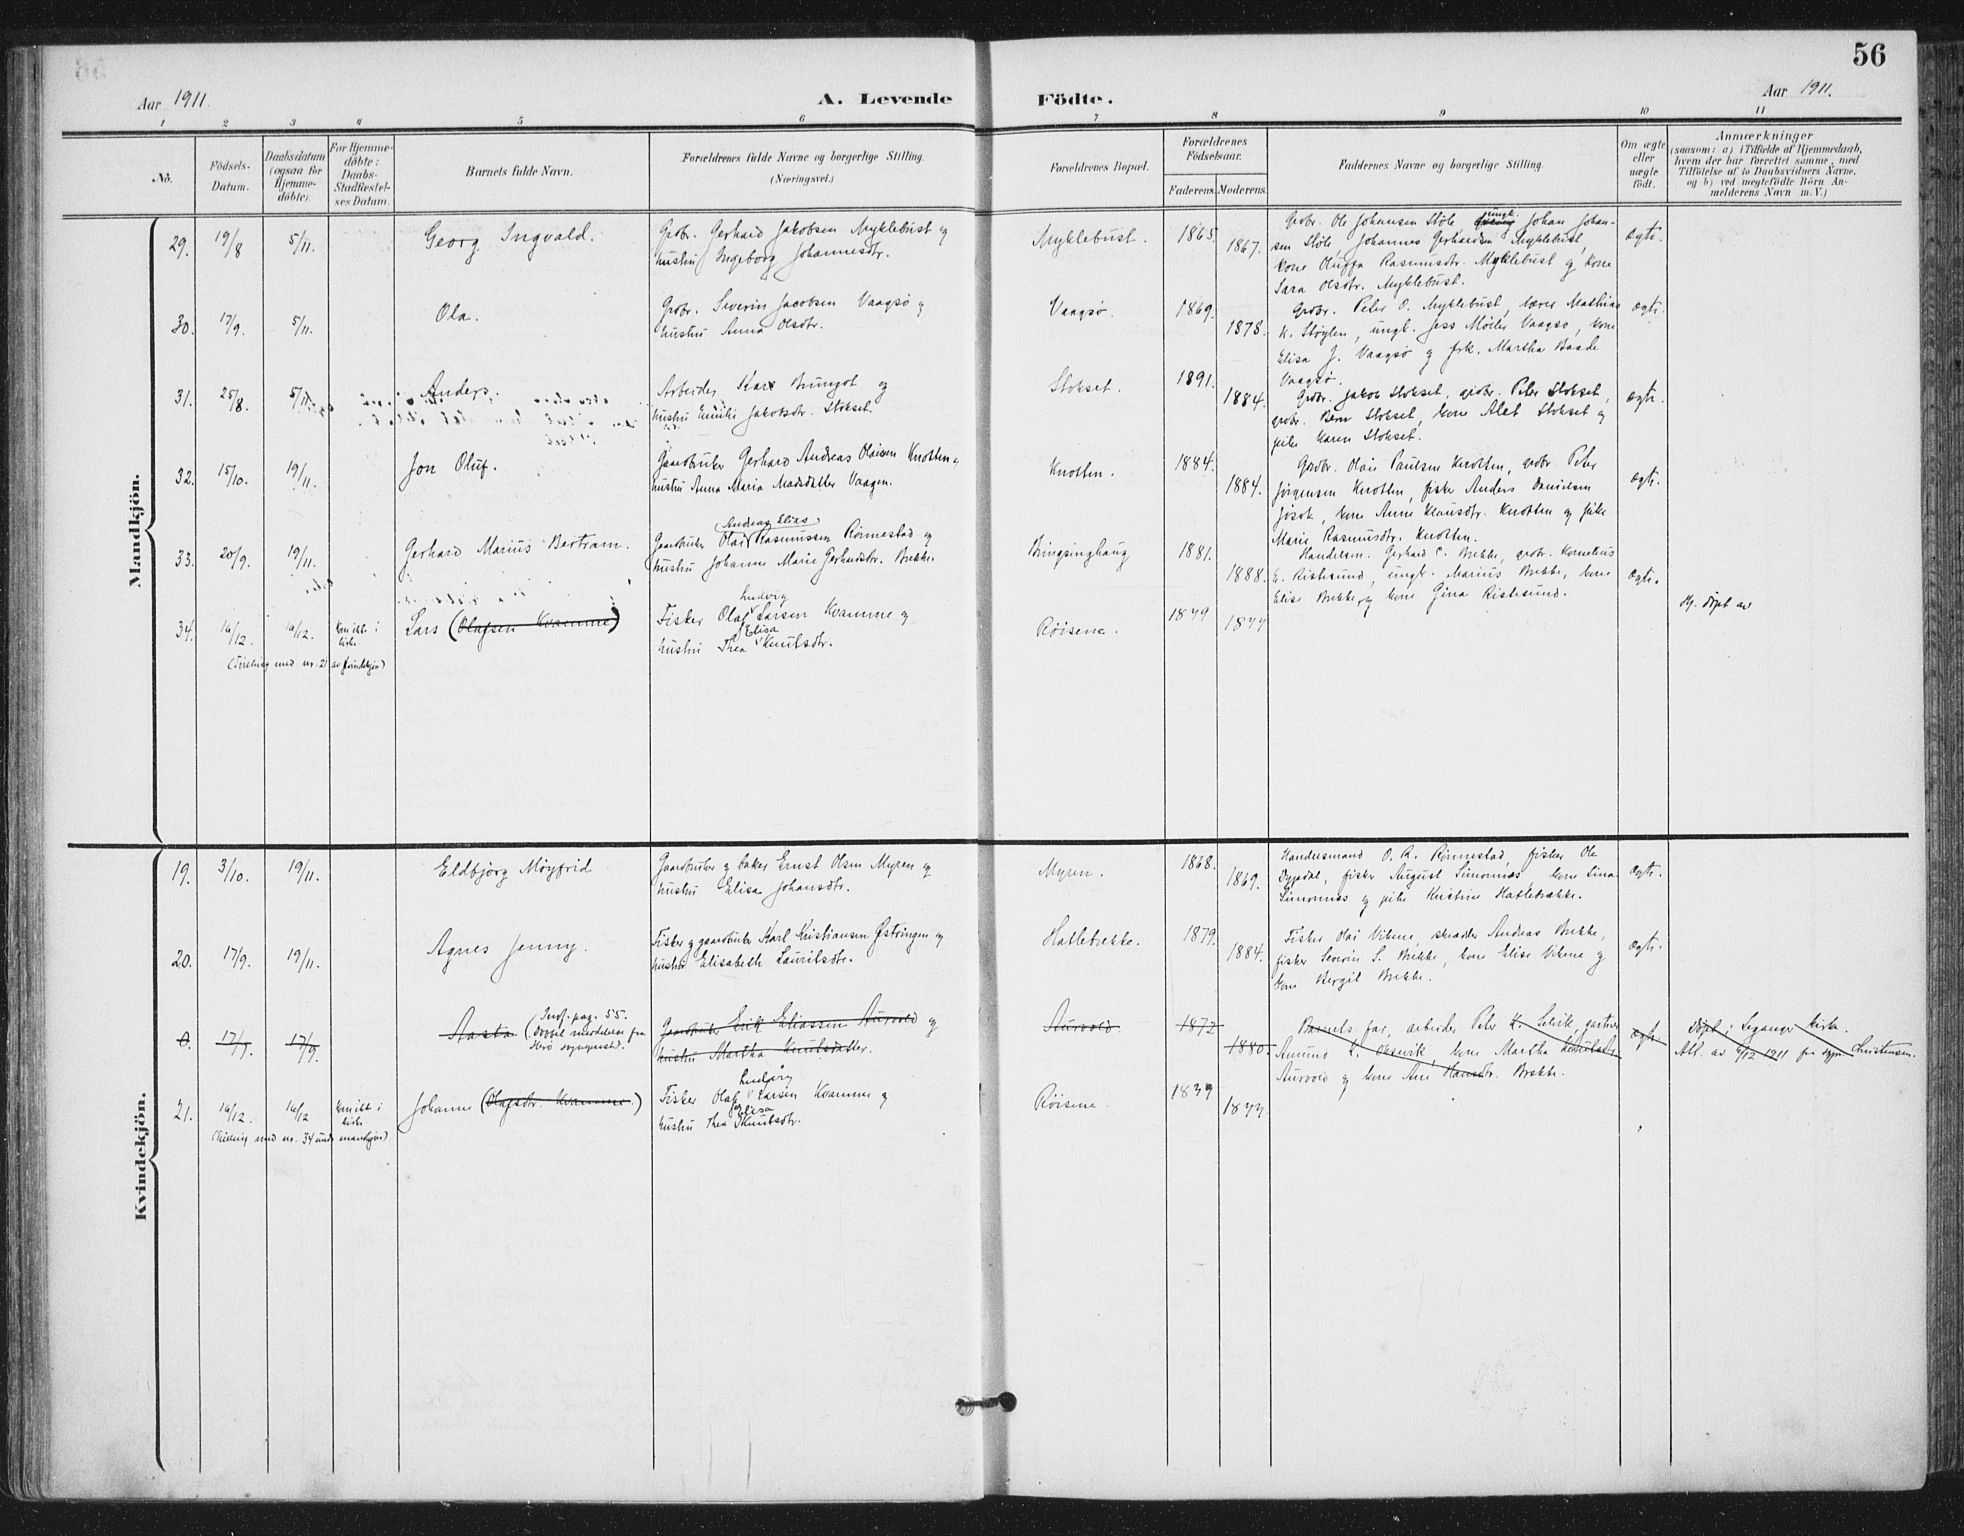 56
Aar 1911.
A. Levende Födte.
Aar 1911.
1 2 3 4 5 6 7 8 9 10 11
No.
Födsels-
Datum.
Daabsdatum
(ogsaa for
Hjemme-
döbte).
For Hjemme-
döbte:
Daabs-
Stadfæstel-
ses Datum.
Barnets fulde Navn.
Forældrenes fulde Navne og borgerlige Stilling.
(Næringsvei.)
Forældrenes Bopæl.
Forældrenes
Födselsaar.
Faderens. Moderens.
Faddernes Navne og borgerlige Stilling.
Om ægte
eller
uægte
födt.
Anmærkninger
(saasom: a) i Tilfælde af Hjemmedaab,
hvem der har forrettet samme, med
Tilföielse af to Daabsvidners Navne.
og b) ved uægtefödte Börn An-
melderens Navn m. V.)
Mandkjön.
29. 19/8 5/11. Georg Ingvald.
Grdbr. Gerhard Jakobsen Myklebust og
hustru Ingeborg Johannesdtr.
Myklebust. 1865. 1867.
Grdbr. Ole Johansen Støle ungk. Johan Johan-
sen Støle, Johannes Gerhardsen Myklebust,
kone Oluffa Rasmusdtr. Myklebust og kone
Sara Olsdtr. Myklebust.
ægte.
30. 17/9. 5/11. Ola.
Grdbr. Severin Jacobsen Vaagsø og
hustru Anna Olsdtr.
Vaagsø. 1869. 1878.
Grdbr. Peter O. Myklebust, Mathias
K. Støylen, ungk. Jess Møller Vaagsø, kone
Elisa J. Vaagsø og frk. Martha Baade
Vaagsø.
ægte.
31. 25/8. 5/11. Anders.
Arbeider Kare Brungot og
hustru Emilie Jakobsdtr. Stokset.
Stokset. 1891. 1884.
Grdbr. Jakob Stokset, grdbr. Peter Stokset,
grdbr. Bern Stokset, kone Alet Stokset og
pike Karen Stokset.
ægte.
32. 15/10. 19/11. Jon Oluf.
Gaardbruker Gerhard Andreas Olaisen Knotten og
hustru Anna Maria Madsdatter Vaagen.
Knotten. 1884. 1884.
Grdbr. Olai Paulsen Knotten, grdbr. Peter
Jørgensen Knotten, fisker Anders Danielsen
Jøsok, kone Anne Klausdtr. Knotten og pike
Marie Rasmusdtr. Knotten.
ægte.
33. 20/9. 19/11. Gerhard Marius Bertram.
(Andreas Elias)
Gaardbruker Olai Rasmussen Rønnestad og
hustru Johanne Marie Gerhardsdtr. Brekke.
Bringsinghaug 1881. 1888.
Handelsm. Gerhard C. Brekke, grdbr. Kornelius
E. Ristesund, ungk. Marius Brekke, kone
Elise Brekke og kone Gina Ristesund.
ægte.
34. 16/12. 16/12. Kom ikke i
kirke.
Lars (Olafsen Kvamme)
(Tvilling med nr. 21 av kvindekjøn)
Ludvig
Fisker Olaf Larsen Kvamme og
Elisa
hustru Thea Knutsdtr.
Røisene. 1879 1877
Hj. døpt av
Kvindekjön.
19. 3/10. 19/11. Eldbjørg Møyfrid
Gaardbruker og baker Ernst Olsen Myren og
hustru Elisa Johansdtr.
Myren. 1868. 1869.
Handelsmand O. R. Rønnestad, fisker Ole
Dypedal, fisker August Simonnæs, kone Lina
Simonnæs og pike Kristine Hatlebrække.
ægte.
20. 17/9. 19/11. Agnes Jenny.
Fisker og gaardbruker Karl Kristiansen Østringen og
hustru Elisabeth Lauritsdtr.
Hatlebrekke. 1879. 1884.
Fisker Olai Vikene, skrædder Andreas Brekke,
fisker Severin S. Brekke, kone Elise Vikene og
kone Bergit Brekke.
ægte.
0. 17/7. 17/9. Aasta (Indf. pag. 55.
Dobbel meddelelse fra
Herø sogneprest).
Gaardbruker Erik Eliassen Aurvold og
hustru Martha Knutsdatter.
Aurvold. 1872 1880.
Barnets far, arbeider Peter K. Selvik, gartner
Amund K. Oksevik, kone Martha Knutsdtr.
Aurvold og kone Ane Hansdtr. Brekke.
ægte.
Døpt i Leganger kirke.
Att. av 6/12 1911 fra sgpr. Christensen.
21. 16/12. 16/12 Kom ikke i
kirke.
Johanne (Olafsdtr. Kvamme.)
(Tvilling med nr. 34 under mandkjøn)
Ludvig
Fisker Olaf Larsen Kvamme og
Elisa
hustru Thea Knutsdtr.
Røisene. 1879 1877.